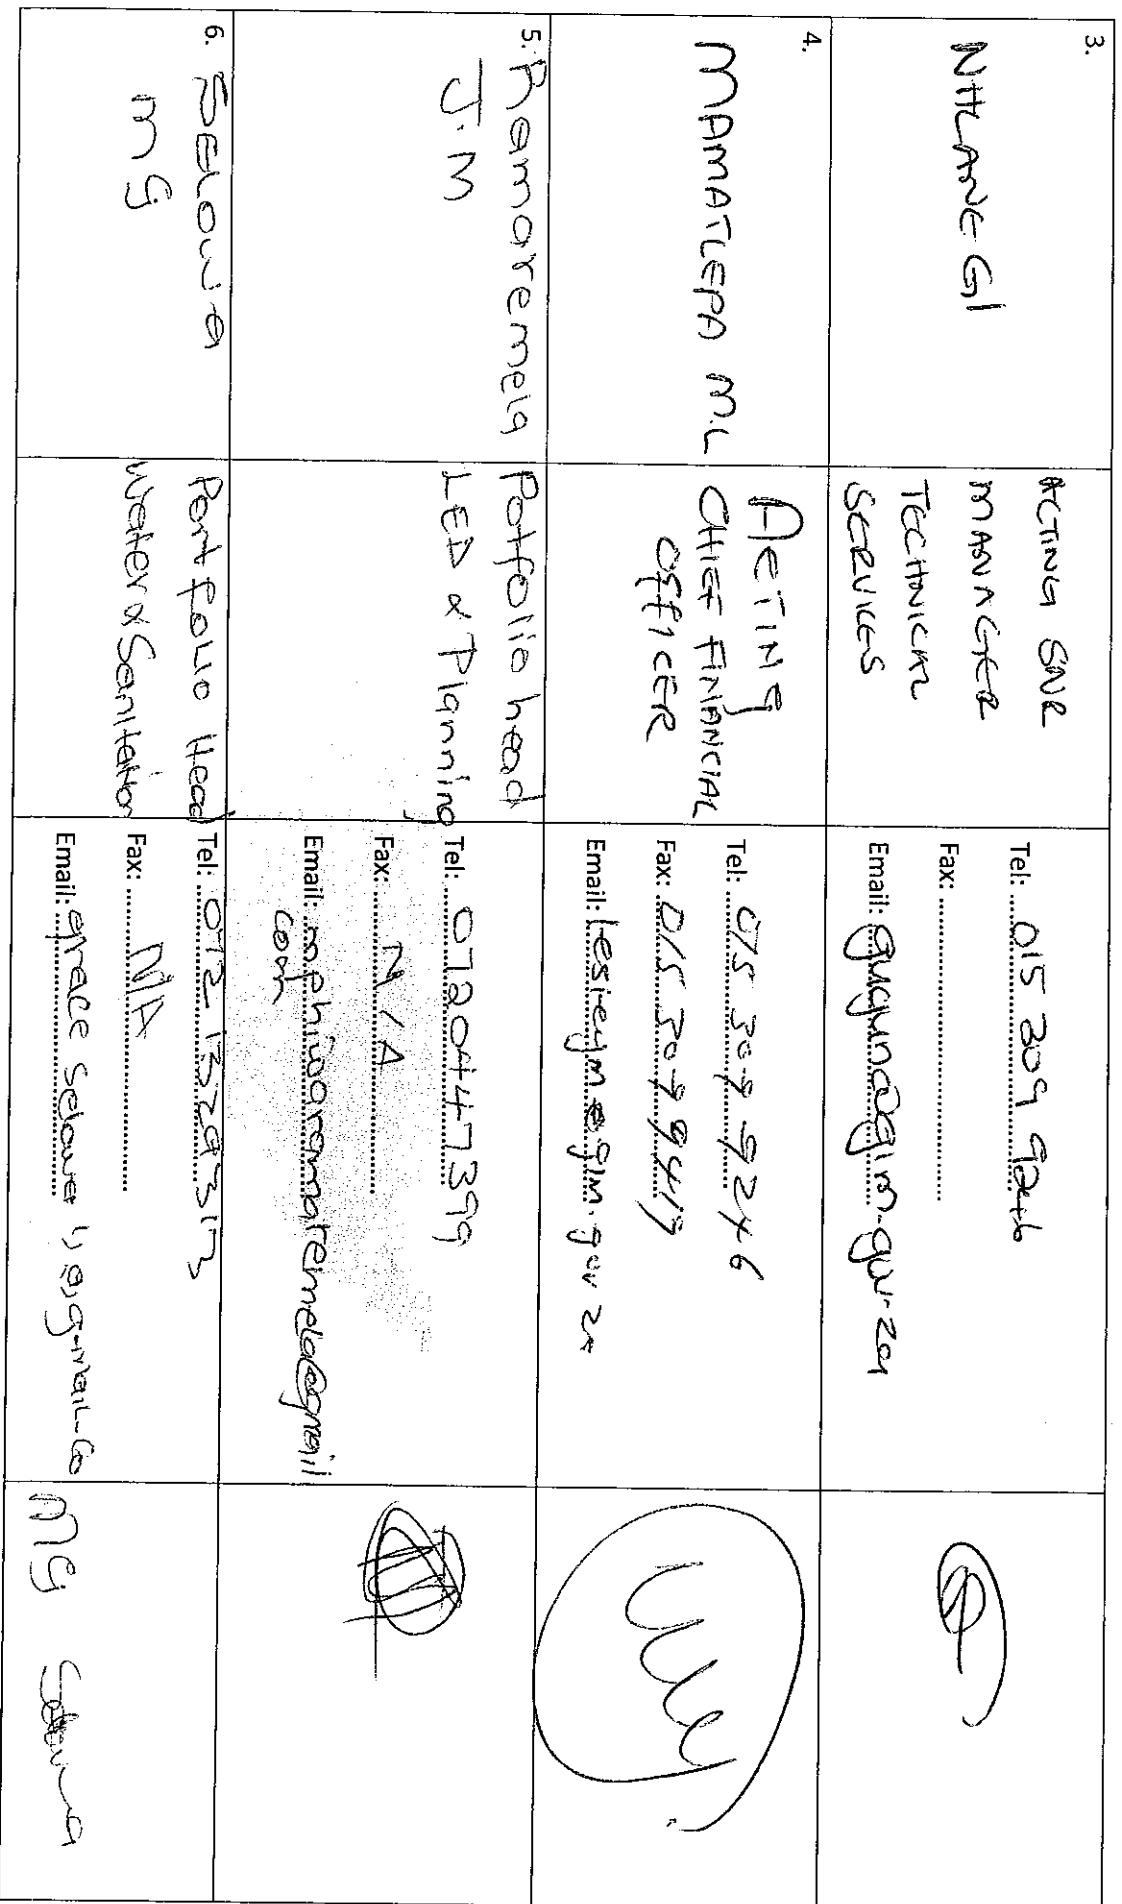 3.
NHLANE GI
ACTING SNR
MANAGER
TECHNICAL
SERVICES
Tel: 015 309 9246
Fax:
Email: gugun@glm.gov.za
4.
MAMATLEPA M.L
ACTING
CHIEF FINANCIAL
OFFICER
Tel: 015 309 9246
Fax: 015 309 9419
Email: lesleym@glm.gov.za
5. Ramaremela
J.M
Potfolio head
LED & Planning
Tel: 0720447399
Fax: N/A
Email:
com
6. SELOWA
MG
Portfolio Head
Water & Sanitation
Tel:
Fax: N/A
Email:
MG Selowa